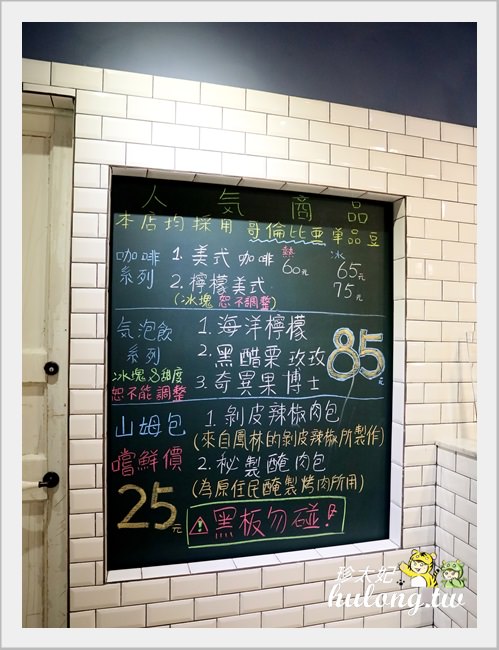 人氣商品
本店均採用哥倫比亞單品豆
咖啡系列
1. 美式咖啡 熱 60元 冰 65元
2. 檸檬美式 75元
(冰塊恕不調整)
気泡飲系列
冰塊&甜度
恕不能調整
1. 海洋檸檬
2. 黑醋栗玫玫
3. 奇異果博士
85元
山姆包
嚐鮮價
25元
1. 剝皮辣椒肉包
(來自鳳林的剝皮辣椒所製作)
2. 秘製醃肉包
(為原住民醃製烤肉所用)
⚠黑板勿碰!
珍太妃
hulong.tw